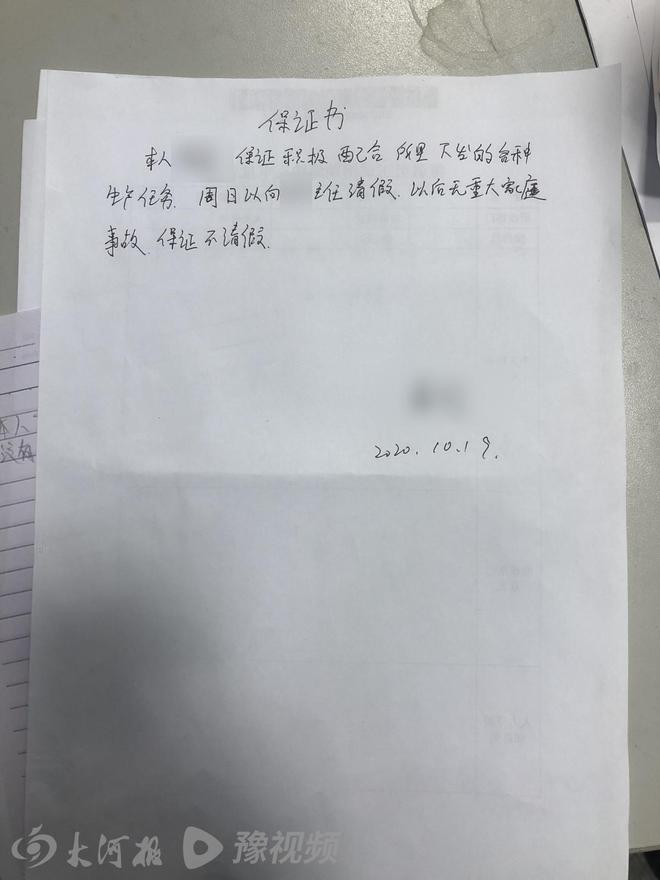 保证书
本人 保证积极配合所里下发的各种
生产任务. 周日以向 主任请假. 以后无重大家庭
事故. 保证不请假.
2020.10.19.
本人
大河报 豫视频